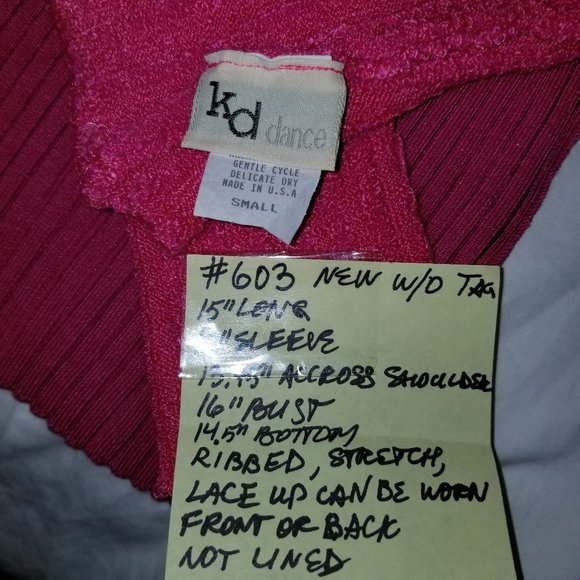 kd dance
GENTLE CYCLE
DELICATE DRY
MADE IN U.S.A
SMALL
#603 NEW W/O TAG
15" LENG
" SLEEVE
" ACCROSS SHOULDER
16" BUST
14.5" BOTTOM
RIBBED, STRETCH,
LACE UP CAN BE WORN
FRONT OR BACK
NOT LINED